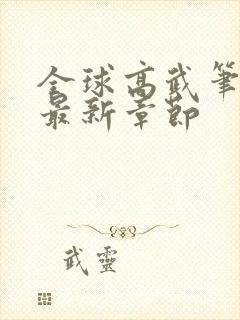 全球高武筆
最新章節
武靈